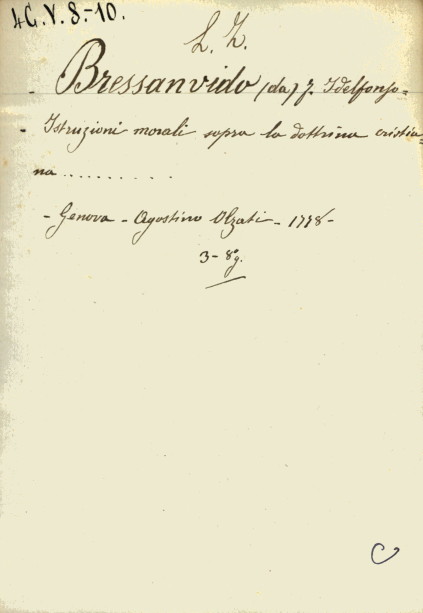 4C.V.8.-10.
L. Z.
- Bressanvido (da) f. Idelfonso=
- Istruzioni morali sopra la dottrina cristia=
na ..........
- Genova - Agostino Olzati - 1778 -
3 - 8º g.
C